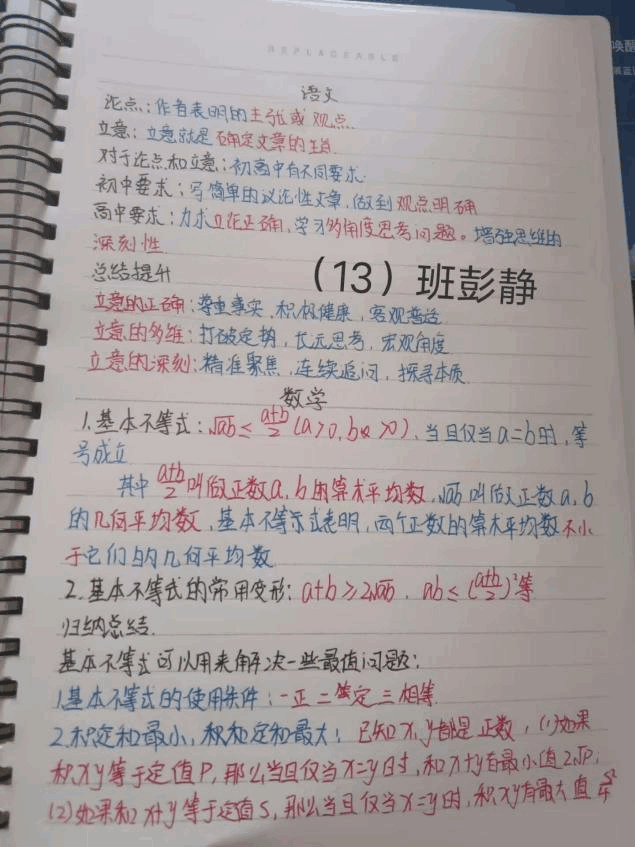 REPLACEABLE
语文
论点：作者表明的主张或观点
立意：立意就是确定文章的主旨
对于论点和立意：初高中有不同要求.
初中要求：写简单的议论性文章，做到观点明确
高中要求：力求立论正确，学习多角度思考问题。增强思维的
深刻性
总结提升
（13）班彭静
立意的正确：尊重事实，积极健康，客观普适
立意的多维：打破定势，长远思考，宏观角度
立意的深刻：精准聚焦，连续追问，探寻本质
数学
1.基本不等式：√ab≤(a+b)/2 (a>0,b>0)，当且仅当a=b时，等
号成立
其中 (a+b)/2 叫做正数a,b的算术平均数，√ab叫做正数a,b
的几何平均数，基本不等示式表明，两个正数的算术平均数不小
于它们的几何平均数
2.基本不等式的常用变形：a+b≥2√ab，ab≤((a+b)/2)²等
归纳总结.
基本不等式可以用来解决一些最值问题：
1.基本不等式的使用条件：一正二定三相等
2.积定和最小，和定积最大：已知x,y都是正数，(1)如果
积xy等于定值P，那么当且仅当x=y时，和x+y有最小值2√P；
(2)如果和x+y等于定值S，那么当且仅当x=y时，积xy有最大值 S²/4